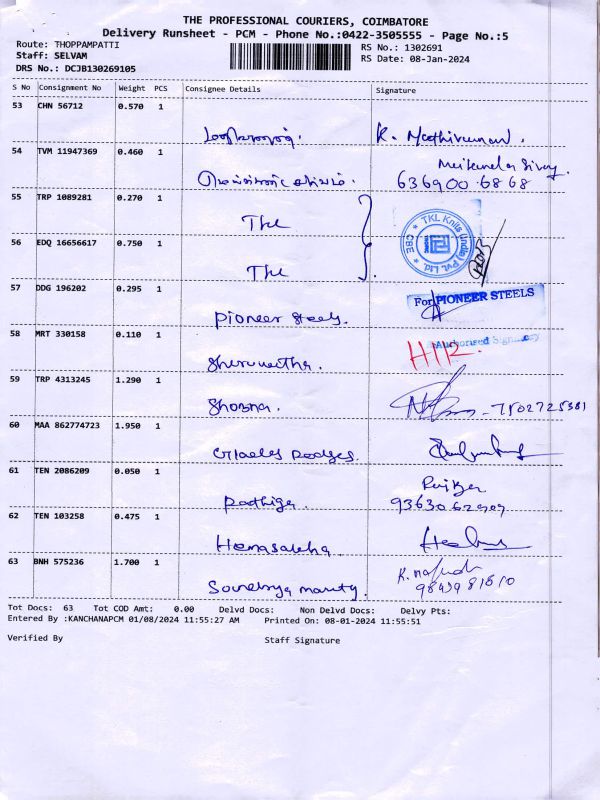 THE PROFESSIONAL COURIERS, COIMBATORE
Delivery Runsheet - PCM - Phone No.:0422-3505555 - Page No.:5
Route: THOPPAMPATTI
RS No.: 1302691
Staff: SELVAM
RS Date: 08-Jan-2024
DRS No.: DCJB130269105
S No Consignment No Weight PCS Consignee Details Signature
53 CHN 56712 0.570 1
K. Mathivanan.
54 TVM 11947369 0.460 1
636900 6868
55 TRP 1089281 0.270 1
TKL
TKL Knits (India) Pvt. Ltd. CBE
56 EDQ 16656617 0.750 1
TKL
57 DDG 196202 0.295 1
Pioneer Steels.
For PIONEER STEELS
Authorised Signatory
58 MRT 330158 0.110 1
H/R.
59 TRP 4313245 1.290 1
Shobna.
- 7502725381
60 MAA 862774723 1.950 1
61 TEN 2086209 0.050 1
62 TEN 103258 0.475 1
Hemasalekha.
63 BNH 575236 1.700 1
Tot Docs: 63 Tot COD Amt: 0.00 Delvd Docs: Non Delvd Docs: Delvy Pts:
Entered By :KANCHANAPCM 01/08/2024 11:55:27 AM Printed On: 08-01-2024 11:55:51
Verified By Staff Signature